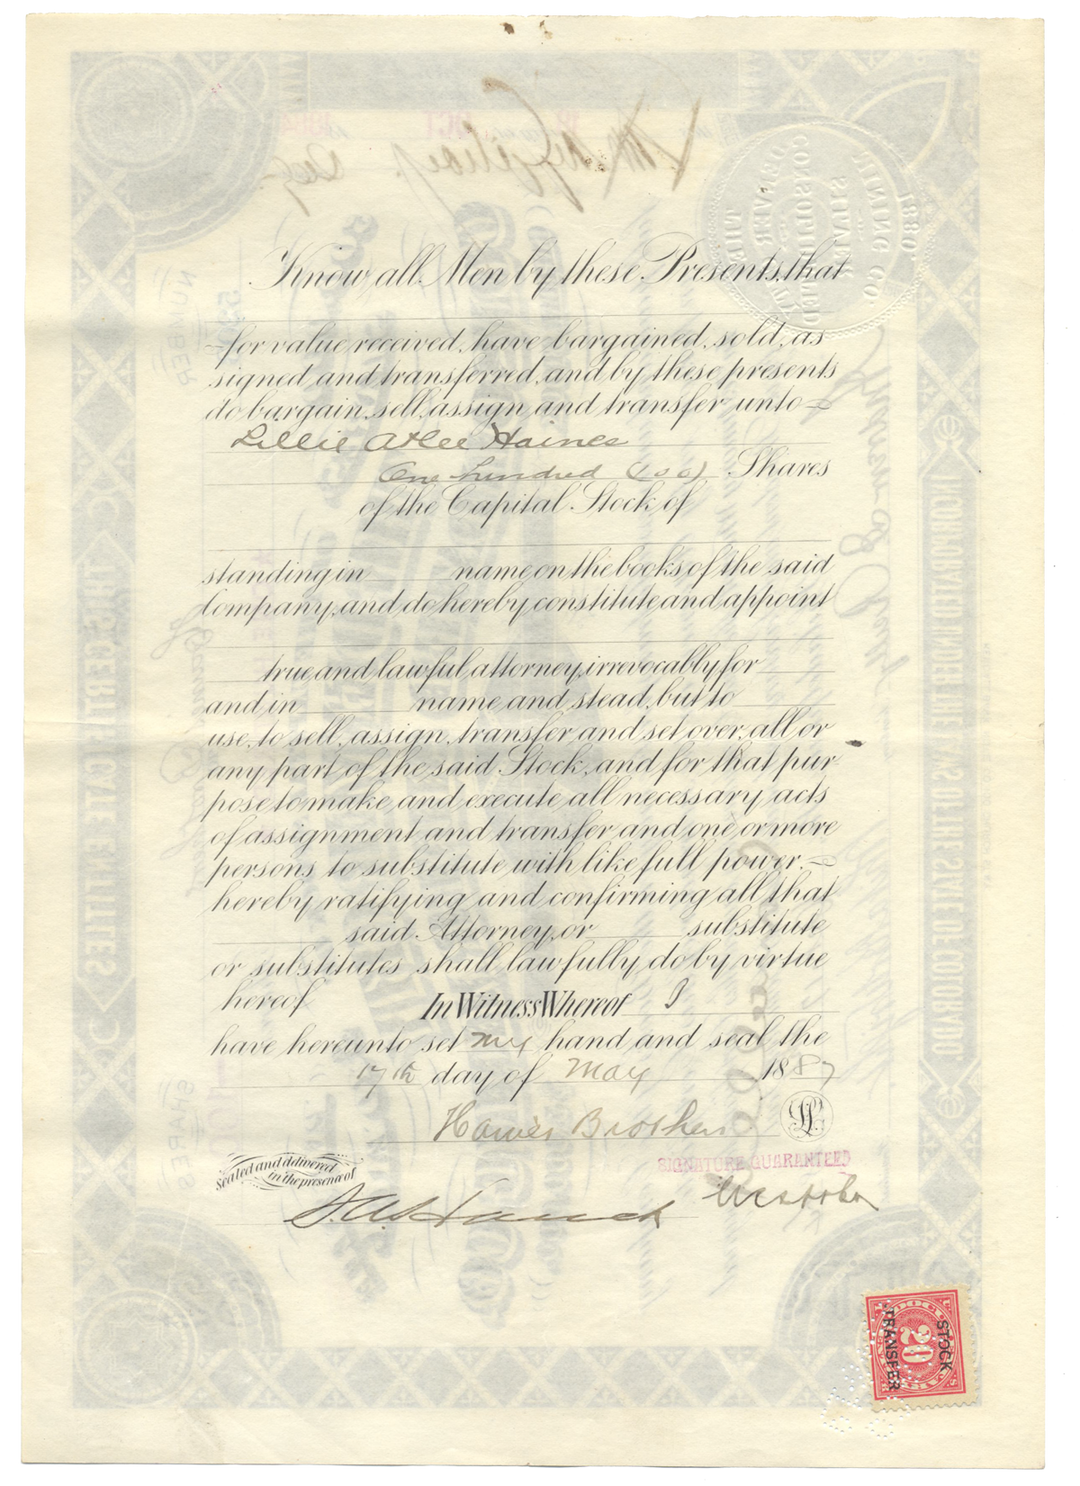 Know all Men by these Presents, that
for value received, have bargained, sold, as
signed and transferred, and by these presents
do bargain, sell, assign and transfer unto
Lillie Atlee Haines
One hundred (100) Shares
of the Capital Stock of
standing in name on the books of the said
Company, and do hereby constitute and appoint
true and lawful attorney, irrevocably for
and in name and stead, but to
use, to sell, assign, transfer and set over, all or
any part of the said Stock, and for that pur
pose to make and execute all necessary acts
of assignment and transfer and one or more
persons to substitute with like full power,
hereby ratifying and confirming all that
said Attorney, or substitute
or substitutes shall lawfully do by virtue
hereof In Witness Whereof I
have hereunto set my hand and seal the
17th day of May 1887
Brothers L.S.
SIGNATURE GUARANTEED
Sealed and delivered
in the presence of
STOCK
TRANSFER
20
1880
CONSOLIDATED
MINING CO
NUMBER
SHARES
INCORPORATED UNDER THE LAWS OF THE STATE OF COLORADO
THIS CERTIFICATE ENTITLES